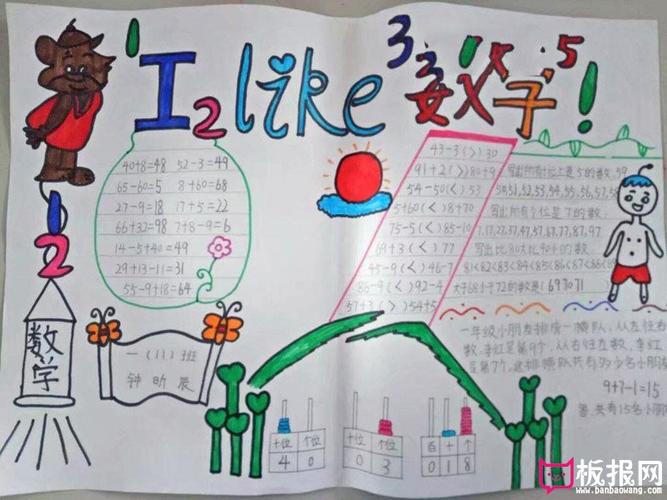 1 2 3 4 5
I like 数字!
40+8=48 52-3=49
65-60=5 8+60=68
27-9=18 17+5=22
66+32=98 7+8-9=6
14-5+40=49
29+13-11=31
55-9+18=64
43-3(>)30
91+2(>)80+9
54-50(<)53
5+60(<)8+70
75-5(<)85-10
69+3(<)77
45-9(<)46-7
86-9(<)92-4
57+3(>)54+5
写出所有十位上是5的数,59
50,51,52,53,54,55,56,57,58
写出所有个位是7的数,
7,17,27,37,47,57,67,77,87,97
写出比80大比90小的数
81<82<83<84<85<86<87<88<89
大于68小于72的数是(69 70 71)
1
2
数学
一(11)班
钟昕辰
一年级小朋友排成一横队,从左往右
数,李红是第9个,从右往左数,李红
是第7个,这排横队共有多少名小朋友
9+7-1=15
答:共有15名小朋
十位 个位
4 0
十位 个位
0 3
百 十 个
0 1 8
板报网
www.banbaowang.com